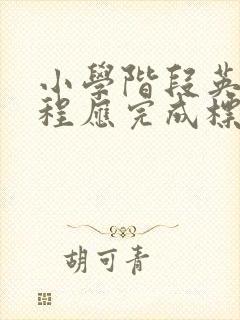 小學階段英
程應完成標
胡可青